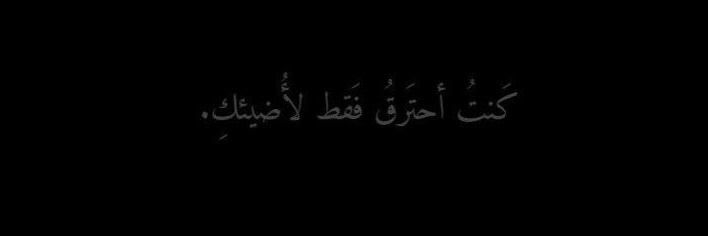 كَنتُ أحتَرقُ فَقط لأُضيئكِ.